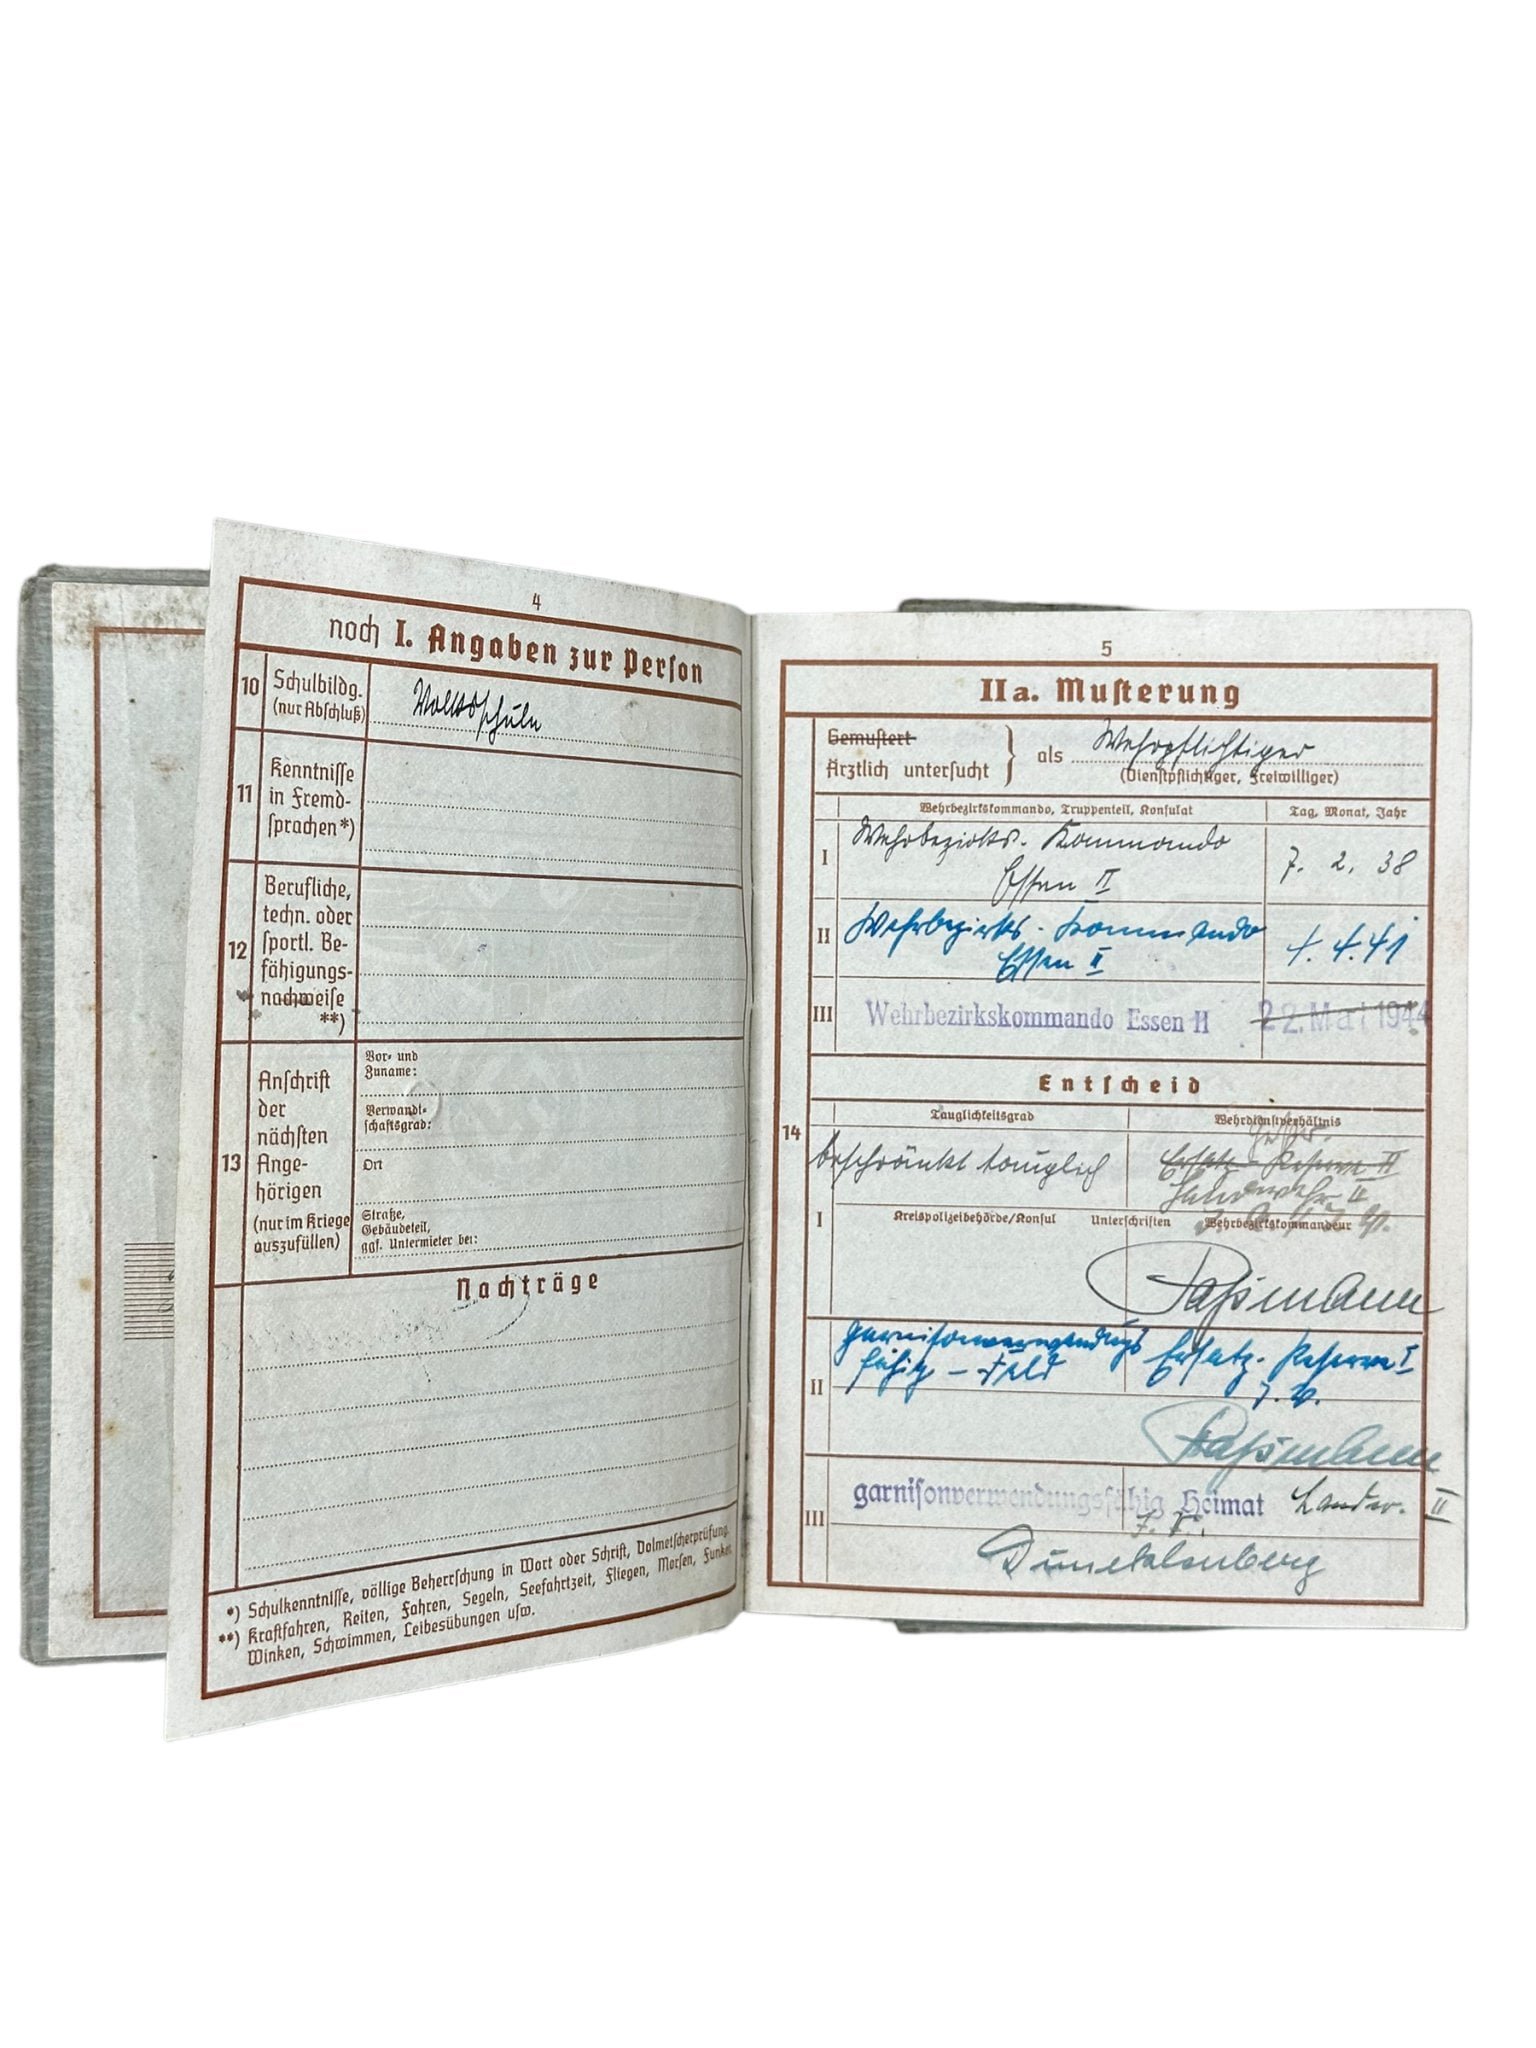 4
noch I. Angaben zur Person
10
Schulbildg.
(nur Abschluß)
Volksschule
11
Kenntnisse
in Fremd-
sprachen*)
12
Berufliche,
techn. oder
sportl. Be-
fähigungs-
nachweise
**)
13
Anschrift
der
nächsten
Ange-
hörigen
(nur im Kriege
auszufüllen)
Vor- und
Zuname:
Verwandt-
schaftsgrad:
Ort
Straße,
Gebäudeteil,
ggf. Untermieter bei:
Nachträge
*) Schulkenntnisse, völlige Beherrschung in Wort oder Schrift, Dolmetscherprüfung.
**) Kraftfahren, Reiten, Fahren, Segeln, Seefahrtzeit, Fliegen, Morsen, Funken
Winken, Schwimmen, Leibesübungen usw.
5
IIa. Musterung
14
Gemustert
Ärztlich untersucht
als Wehrpflichtiger
(Dienstpflichtiger, Freiwilliger)
Wehrbezirkskommando, Truppenteil, Konsulat Tag, Monat, Jahr
I Wehrbezirks-Kommando
Essen II
7. 2. 38
II Wehrbezirks-Kommando
Essen II
4.41
III Wehrbezirkskommando Essen II 22. Mai 1944
Entscheid
Tauglichkeitsgrad Wehrdienstverhältnis
beschränkt tauglich Ersatz-Reserve II
Landwehr II
I Kreispolizeibehörde/Konsul Unterschriften Wehrbezirkskommandeur
Paßmann
II garnisonverwendungs
fähig – Feld
Ersatz-Reserve I
Paßmann
III garnisonverwendungsfähig Heimat Landw. II